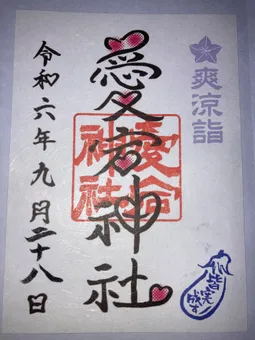 爽涼詣
愛宕神社
愛宕
神社
令和六年九月二十八日